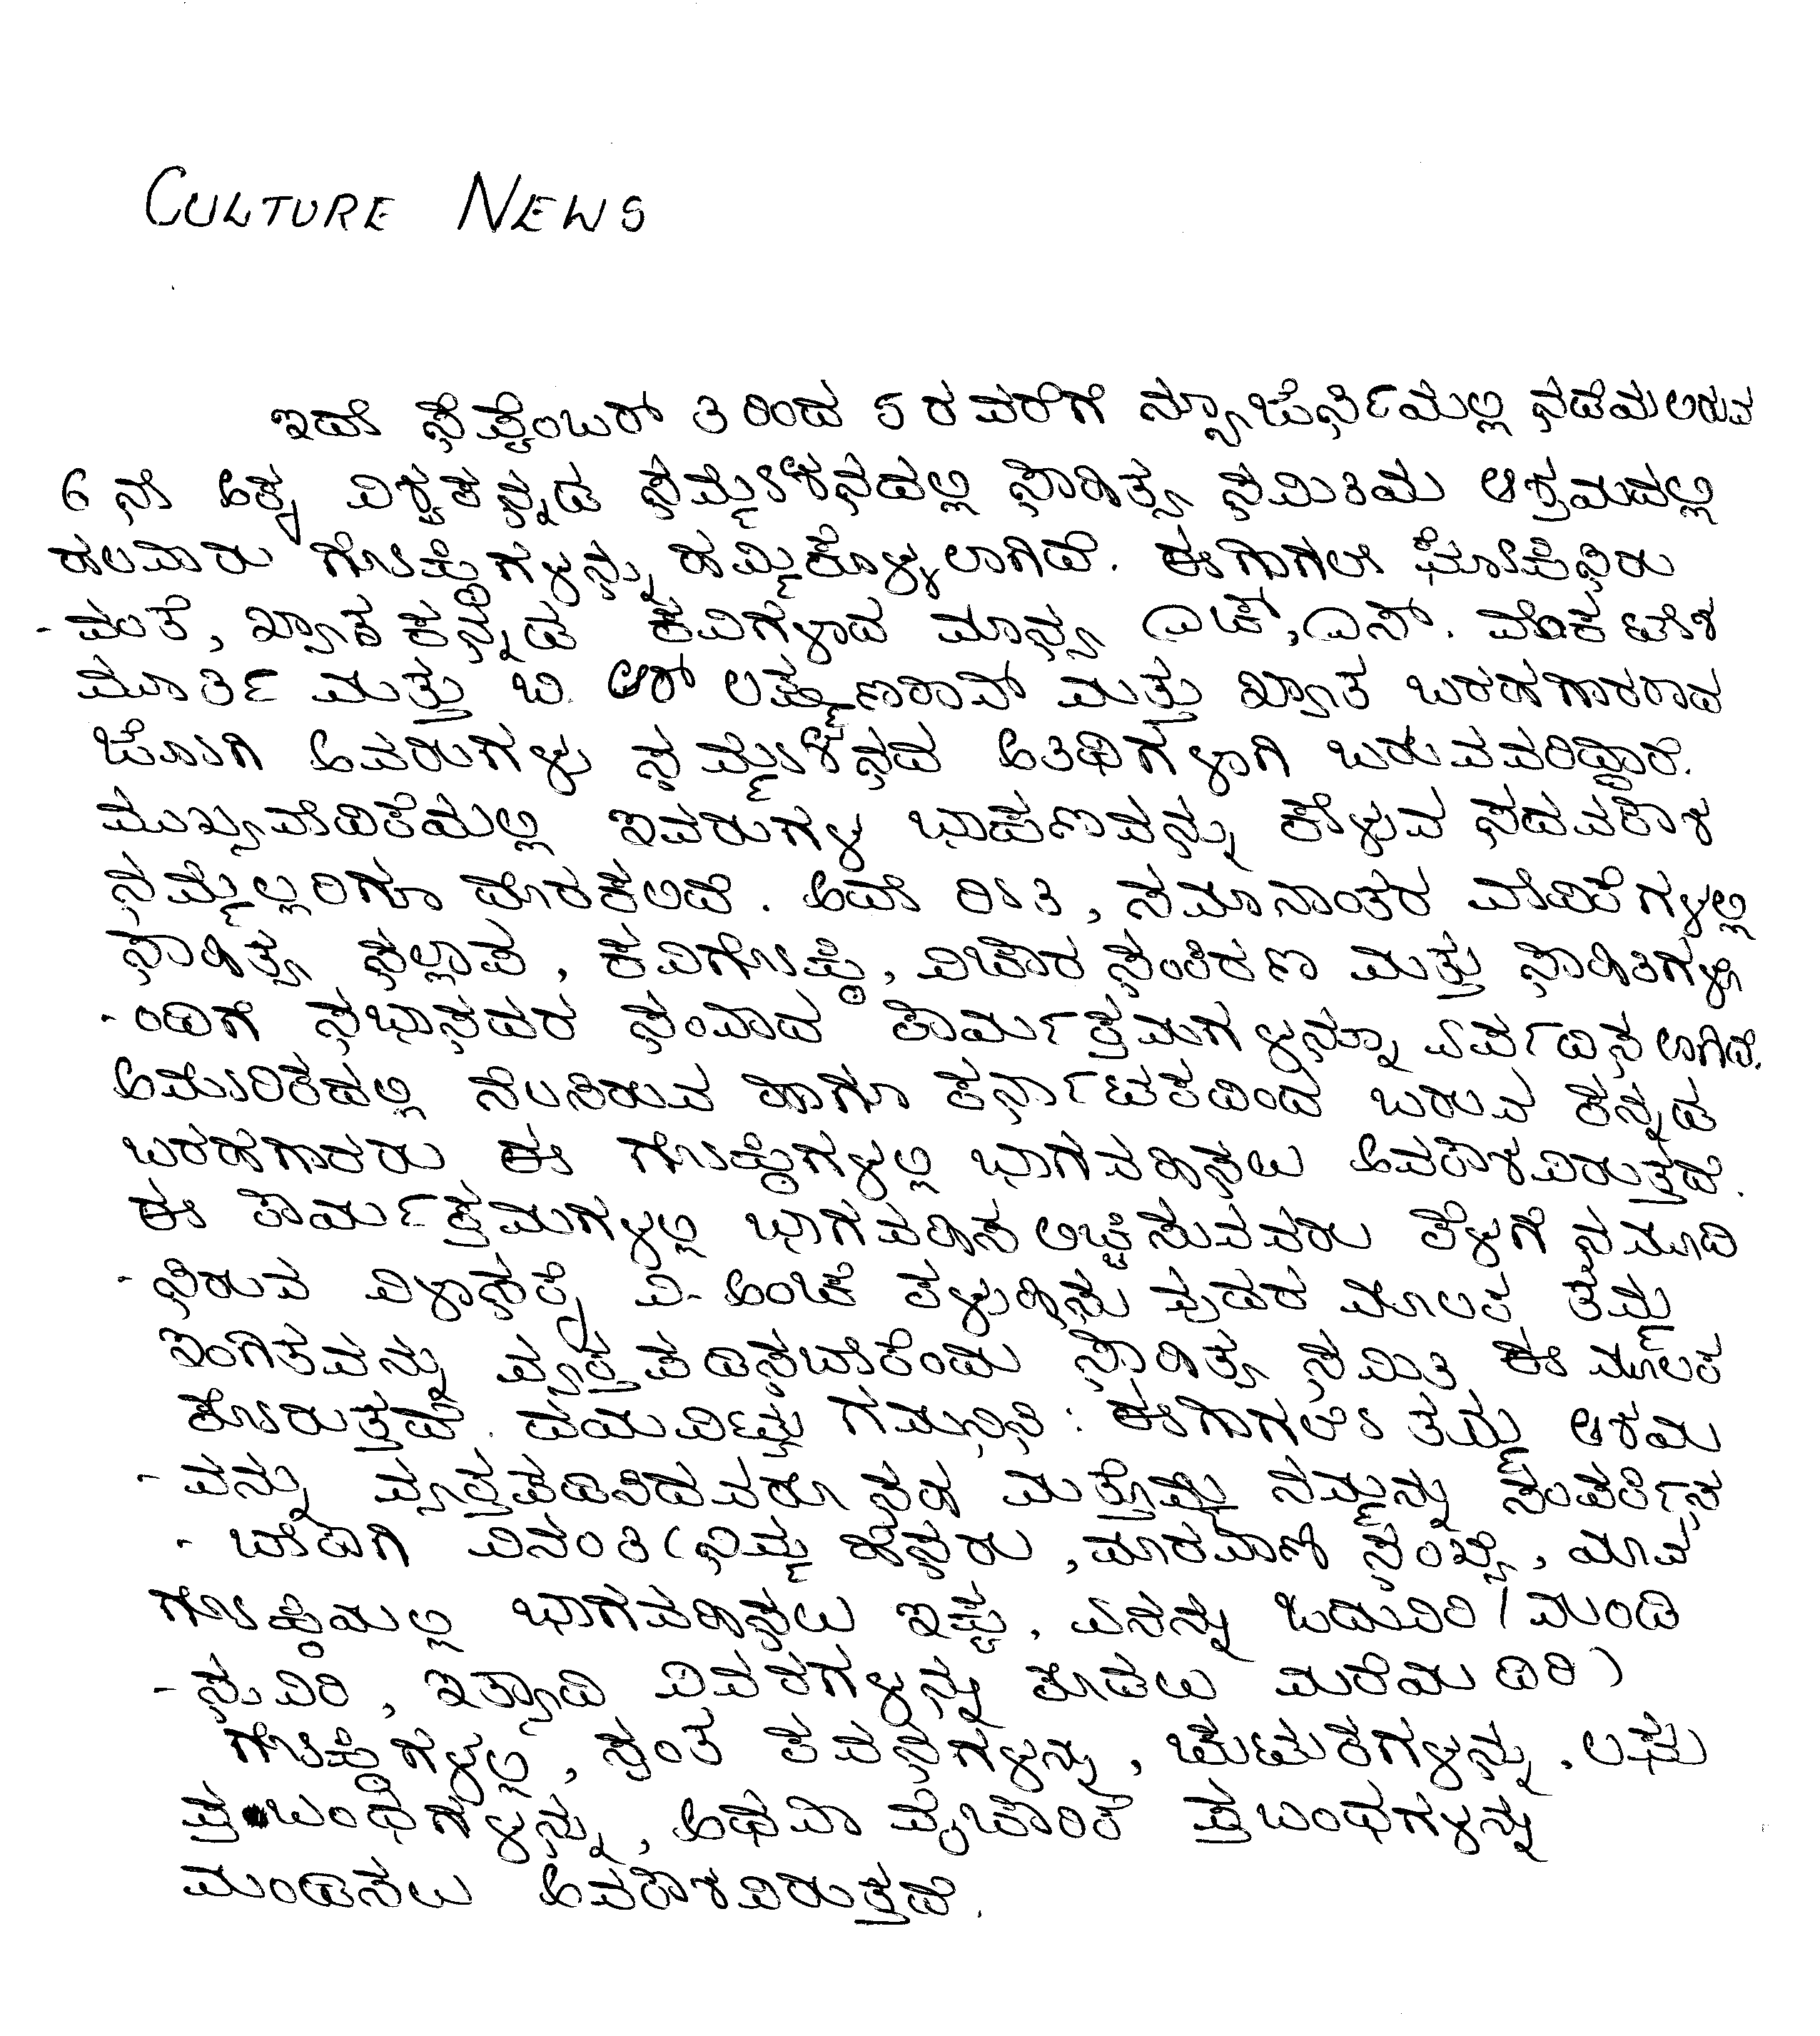 CULTURE NEWS
ಇದೇ ಸೆಪ್ಟೆಂಬರ್ 3 ರಿಂದ 5 ರ ವರೆಗೆ ನ್ಯೂಜೆರ್ಸಿಯಲ್ಲಿ ನಡೆಯಲಿರುವ
6 ನೇ ಅಕ್ಕ ವಿಶ್ವಕನ್ನಡ ಸಮ್ಮೇಳನದಲ್ಲಿ ಸಾಹಿತ್ಯ ಸಮಿತಿಯ ಆಶ್ರಯದಲ್ಲಿ
ಹಲವಾರು ಗೋಷ್ಠಿಗಳನ್ನು ಹಮ್ಮಿಕೊಳ್ಳಲಾಗಿದೆ. ಈಗಾಗಲೇ ಘೋಷಿಸಿರು
-ವಂತೆ, ಖ್ಯಾತ ಕನ್ನಡ ಕವಿಗಳಾದ ಮಾನ್ಯ ಎಚ್,ಎಸ್. ವೆಂಕಟೇಶ
ಮೂರ್ತಿ ಮತ್ತು ಬಿ. ಆರ್ ಲಕ್ಷ್ಮಣರಾವ್ ಮತ್ತು ಖ್ಯಾತ ಬರಹಗಾರರಾದ
ಜೋಗಿ ಅವರುಗಳು ಸಮ್ಮೇಳನದ ಅತಿಥಿಗಳಾಗಿ ಬರುವವರಿದ್ದಾರೆ.
ಮುಖ್ಯವೇದಿಕೆಯಲ್ಲಿ ಇವರುಗಳ ಭಾಷಣವನ್ನು ಕೇಳುವ ಸದವಕಾಶ
ನಮ್ಮೆಲ್ಲರಿಗೂ ದೊರಕಲಿದೆ. ಅದೇ ರೀತಿ, ಸಮಾನಾಂತರ ವೇದಿಕೆಗಳಲ್ಲಿ
ಸಾಹಿತ್ಯ ಸಲ್ಲಾಪ, ಕವಿಗೋಷ್ಠಿ, ವಿಚಾರ ಸಂಕಿರಣ ಮತ್ತು ಸಾಹಿತಿಗಳೊ
-ಂದಿಗೆ ಸಭಾಸದರ ಸಂವಾದ ಕಾರ್ಯಕ್ರಮಗಳನ್ನೂ ಏರ್ಪಡಿಸಲಾಗಿದೆ.
ಅಮೆರಿಕದಲ್ಲಿ ನೆಲಸಿರುವ ಹಾಗೂ ಕರ್ನಾಟಕದಿಂದ ಬರುವ ಕನ್ನಡ
ಬರಹಗಾರರು ಈ ಗೋಷ್ಠಿಗಳಲ್ಲಿ ಭಾಗವಹಿಸಲು ಅವಕಾಶವಿರುತ್ತದೆ.
ಈ ಕಾರ್ಯಕ್ರಮಗಳಲ್ಲಿ ಭಾಗವಹಿಸಲಿಚ್ಛಿಸುವವರು ಕೆಳಗೆ ನಮೂದಿ
-ಸಿರುವ ವಿಳಾಸಕ್ಕೆ ವಿ-ಅಂಚೆ ಕಳುಹಿಸುವುದರ ಮೂಲಕ ತಮ್ಮ
ಇಂಗಿತವನ್ನು ವ್ಯಕ್ತಪಡಿಸಬೇಕೆಂದು ಸಾಹಿತ್ಯ ಸಮಿತಿ ಈ ಮೂಲಕ
ಕೋರುತ್ತದೆ. ದಯವಿಟ್ಟು ಗಮನಿಸಿ: ಈಗಾಗಲೇ ತಮ್ಮ ಆಶಯ
-ವನ್ನು ವ್ಯಕ್ತಪಡಿಸಿದವರೂ ಸಹ ಮತ್ತೊಮ್ಮೆ ನಮ್ಮನ್ನು ಸಂಪರ್ಕಿಸ
-ಬೇಕಾಗಿ ವಿನಂತಿ (ನಿಮ್ಮ ಹೆಸರು, ದೂರವಾಣಿ ಸಂಖ್ಯೆ, ಯಾವ
ಗೋಷ್ಠಿಯಲ್ಲಿ ಭಾಗವಹಿಸಲು ಇಷ್ಟ, ಏನನ್ನು ಓದುವಿರಿ/ಮಂಡಿ
-ಸುವಿರಿ, ಇತ್ಯಾದಿ ವಿವರಗಳನ್ನು ಕೊಡಲು ಮರೆಯದಿರಿ)
ಗೋಷ್ಠಿಗಳಲ್ಲಿ, ಸ್ವಂತ ಕವನಗಳನ್ನು, ಚುಟುಕಗಳನ್ನು, ಲಘು
ಪ್ರಬಂಧಗಳನ್ನು, ಅಥವಾ ವೈಚಾರಿಕ ಪ್ರಬಂಧಗಳನ್ನು
ಮಂಡಿಸಲು ಅವಕಾಶವಿರುತ್ತದೆ.